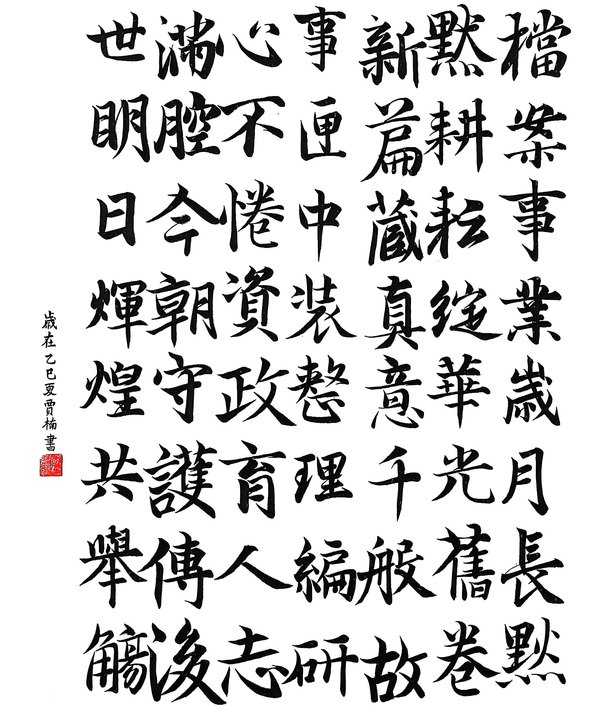 檔案事業歲月長默
默耕耘綻華光舊卷
新篇藏真意千般故
事匣中裝整理編研
心不惓資政育人志
滿腔今朝守護傳後
世明日輝煌共舉觴
歲在乙巳夏賈楠書